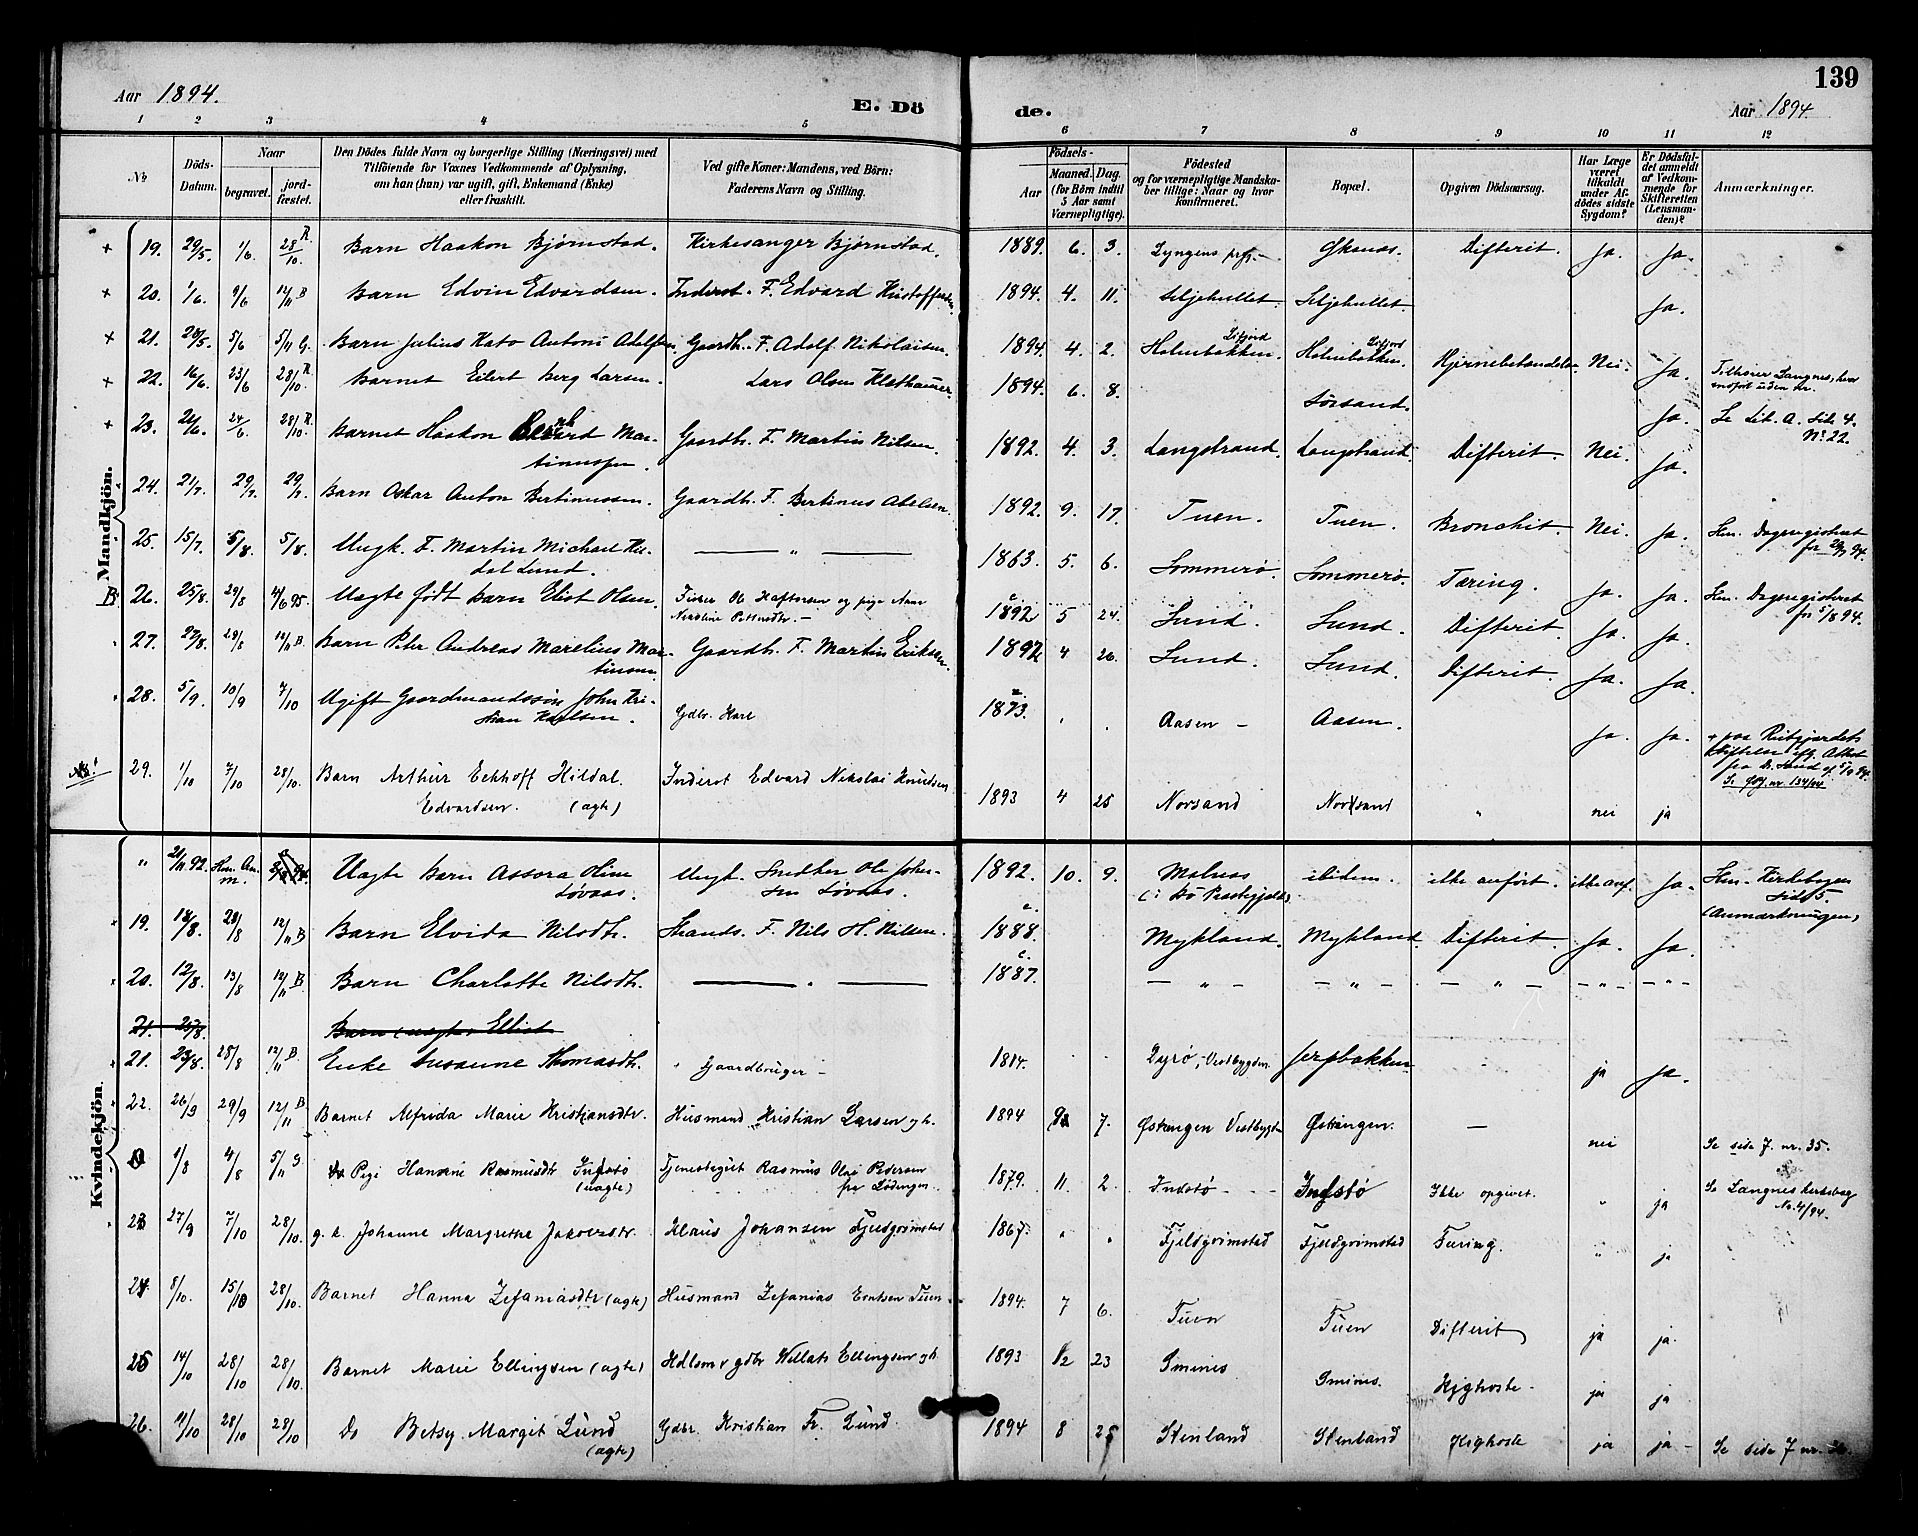 139
Aar 1894.
E. Dö
de.
Aar 1894.
1 2 3 4 5 6 7 8 9 10 11 12
No
Döds-Datum.
Naar
begravet.
jord-fæstet.
Den Dödes fulde Navn og borgerlige Stilling (Næringsvei) med
Tilföiende for Voxnes Vedkommende af Oplysning,
om han (hun) var ugift, gift, Enkemand (Enke)
eller fraskilt.
Ved gifte Koner: Mandens, ved Börn:
Faderens Navn og Stilling.
Födsels-
Aar
Maaned. Dag.
(for Börn indtil
5 Aar samt
Værnepligtige).
Födested
og for værnepligtige Mandska-
ber tillige: Naar og hvor
konfirmeret.
Bopæl.
Opgiven Dödsaarsag.
Har Læge
været
tilkaldt
under Af-
dödes sidste
Sygdom?
Er Dödsfal-
det anmeldt
af Vedkom-
mende for
Skifteretten
(Lensman-
den)?
Anmærkninger.
Mandkjön.
+ 19. 29/5. 1/6. 28/10. R. Barn Haakon Bjørnstad. Kirkesanger Bjørnstad. 1889. 6. 3. Lyngens Difterit. Ja. Ja.
+ 20. 1/6. 9/6 12/11 B Barn Edvin Edvardsen. Inderst. F. Edvard 1894. 4. 11. Seljehullet. Seljehullet. Ja.
+ 21. 5/6 5/11 G. Barn Julius Kato Antoni Gaardb. F. Adolf Nikolaisen. 1894. 4. 2. Holmbakken. Holmbakken. Nei. Ja. Tilhører Langnes, hvor
indført uden nr.
+ 22. 16/6. 23/6 28/10. R Barnet Eilert Berg Larsen. Lars Olsen 1894. 6. 8. Sørsand. Ja. Se Lit. A. side 4.
No. 22.
+ 23. 24/6 28/10. R. Barnet Haakon Mar-
tinussen. Gaardb. F. Martin Nilsen. 1892. 4. 3. Langstrand. Langstrand. Difterit. Nei. Ja.
24. 21/7. 29/7. 29/7. Barn Oskar Anton Bertinussen. Gaardb. F. Bertinus Abelsen. 1892. 9. 17. Tuen. Tuen. Bronchit. Nei. Ja. Hen. Dagsregisteret
25. 15/7. 5/8. 5/8. Ungk. F. Martin Michael
Lund. — " — 1863. 5. 6. Sommerø. Sommerø. Tæring. Ja. Ja. Hen. Dagsregisteret
for 5/8 94.
B 26. 25/8. 29/8 4/6 95. Uægte født barn Elist Olsen. Fisker Ole og pige
1892 5 24. Lund. Lund. Difterit. Ja. Ja.
27. 27/8. 29/8 12/11 B. Barn Peter Andreas Marelius Mar-
tinsen. Gaardb. F. Martin Eriksen. 1892 4 26. Lund. Lund. Difterit. Ja. Ja.
28. 5/9. 10/9 7/10 Ugift Gaardmandssøn John Kri-
stian Karlsen. Gdbr. Karl 1873. Aasen - Aasen. Ja. Ja.
29. 1/10 7/10 28/10. Barn Arthur Eckhoff Hildal
Edvardsen. (ægte) Inderst Edvard Nikolai Knudsen 1893 4 25 Norsand Norsand " nei ja
Kvindekjön.
" 92. Uægte Barn Assora
Løvaas. Ungk. Snedker Ole Johan-
sen Løvaas. 1892. 10. 9. Malnes
(i Bø Præstegjeld) ibidem. ikke anført. ikke anf. Ja. Hen. Kirkebogen
side 5.
(Anmærkningen)
19. 28/8 12/11 B Barn Elvida Nilsdtr. Strands. F. Nils H. Nilsen. 1888. Mykland. Mykland. Difterit. Ja. Ja.
20. 12/8. 13/8 12/11 B. Barn Charlotte Nilsdtr. — " — 1887. — " — — " — — " — — " — — " —
21. 25/8. Barn (uægte) Ellist
21. 23/8. 28/8 12/11 B. Enke Susanne Thomasdtr. Gaardbruger - 1814. Vestbygden Jerpbakken ja Ja.
22. 26/9 29/9 12/11 B Barnet Alfrida Marie Kristiansdtr. Husmand Kristian Larsen 1894 7. Østengen Vestbygd Østengen. — nei Se side 7. nr. 35.
1/8 4/8 5/11 G Pige Hansine Rasmusdtr Indstø
(uægte) Tjenestegut Rasmus Olai Pedersen
fra Lødingen. 1879. 11. 2. Indstø Indstø Ikke opgivet. " ja Se Langnes kirkebog
No. 4/94.
23 27/9 7/10 28/10. g. k. Johanne Margrethe Jakobsdtr. Klaus Johansen Fjeldgrimstad 1867. " " Fjeldgrimstad Fjeldgrimstad Tæring. " ja
24 8/10. 15/10 28/10. Barnet Hanna Zefaniasdtr (ægte) Husmand Zefanias Tuen 1894. 7 6. Tuen Tuen Difterit ja ja.
25 14/10 28/10 28/10. Barnet Marie Ellingsen (ægte) Ellingsen 1893 12 23 Smines Smines. Kighoste. ja ja
26. 28/10 28/10 Do Betsy Margit Lund
(ægte) Gdbr. Kristian Fr. Lund. 1894 8 25 Stenland Stenland Kighoste ja ja - Se side 7 nr.